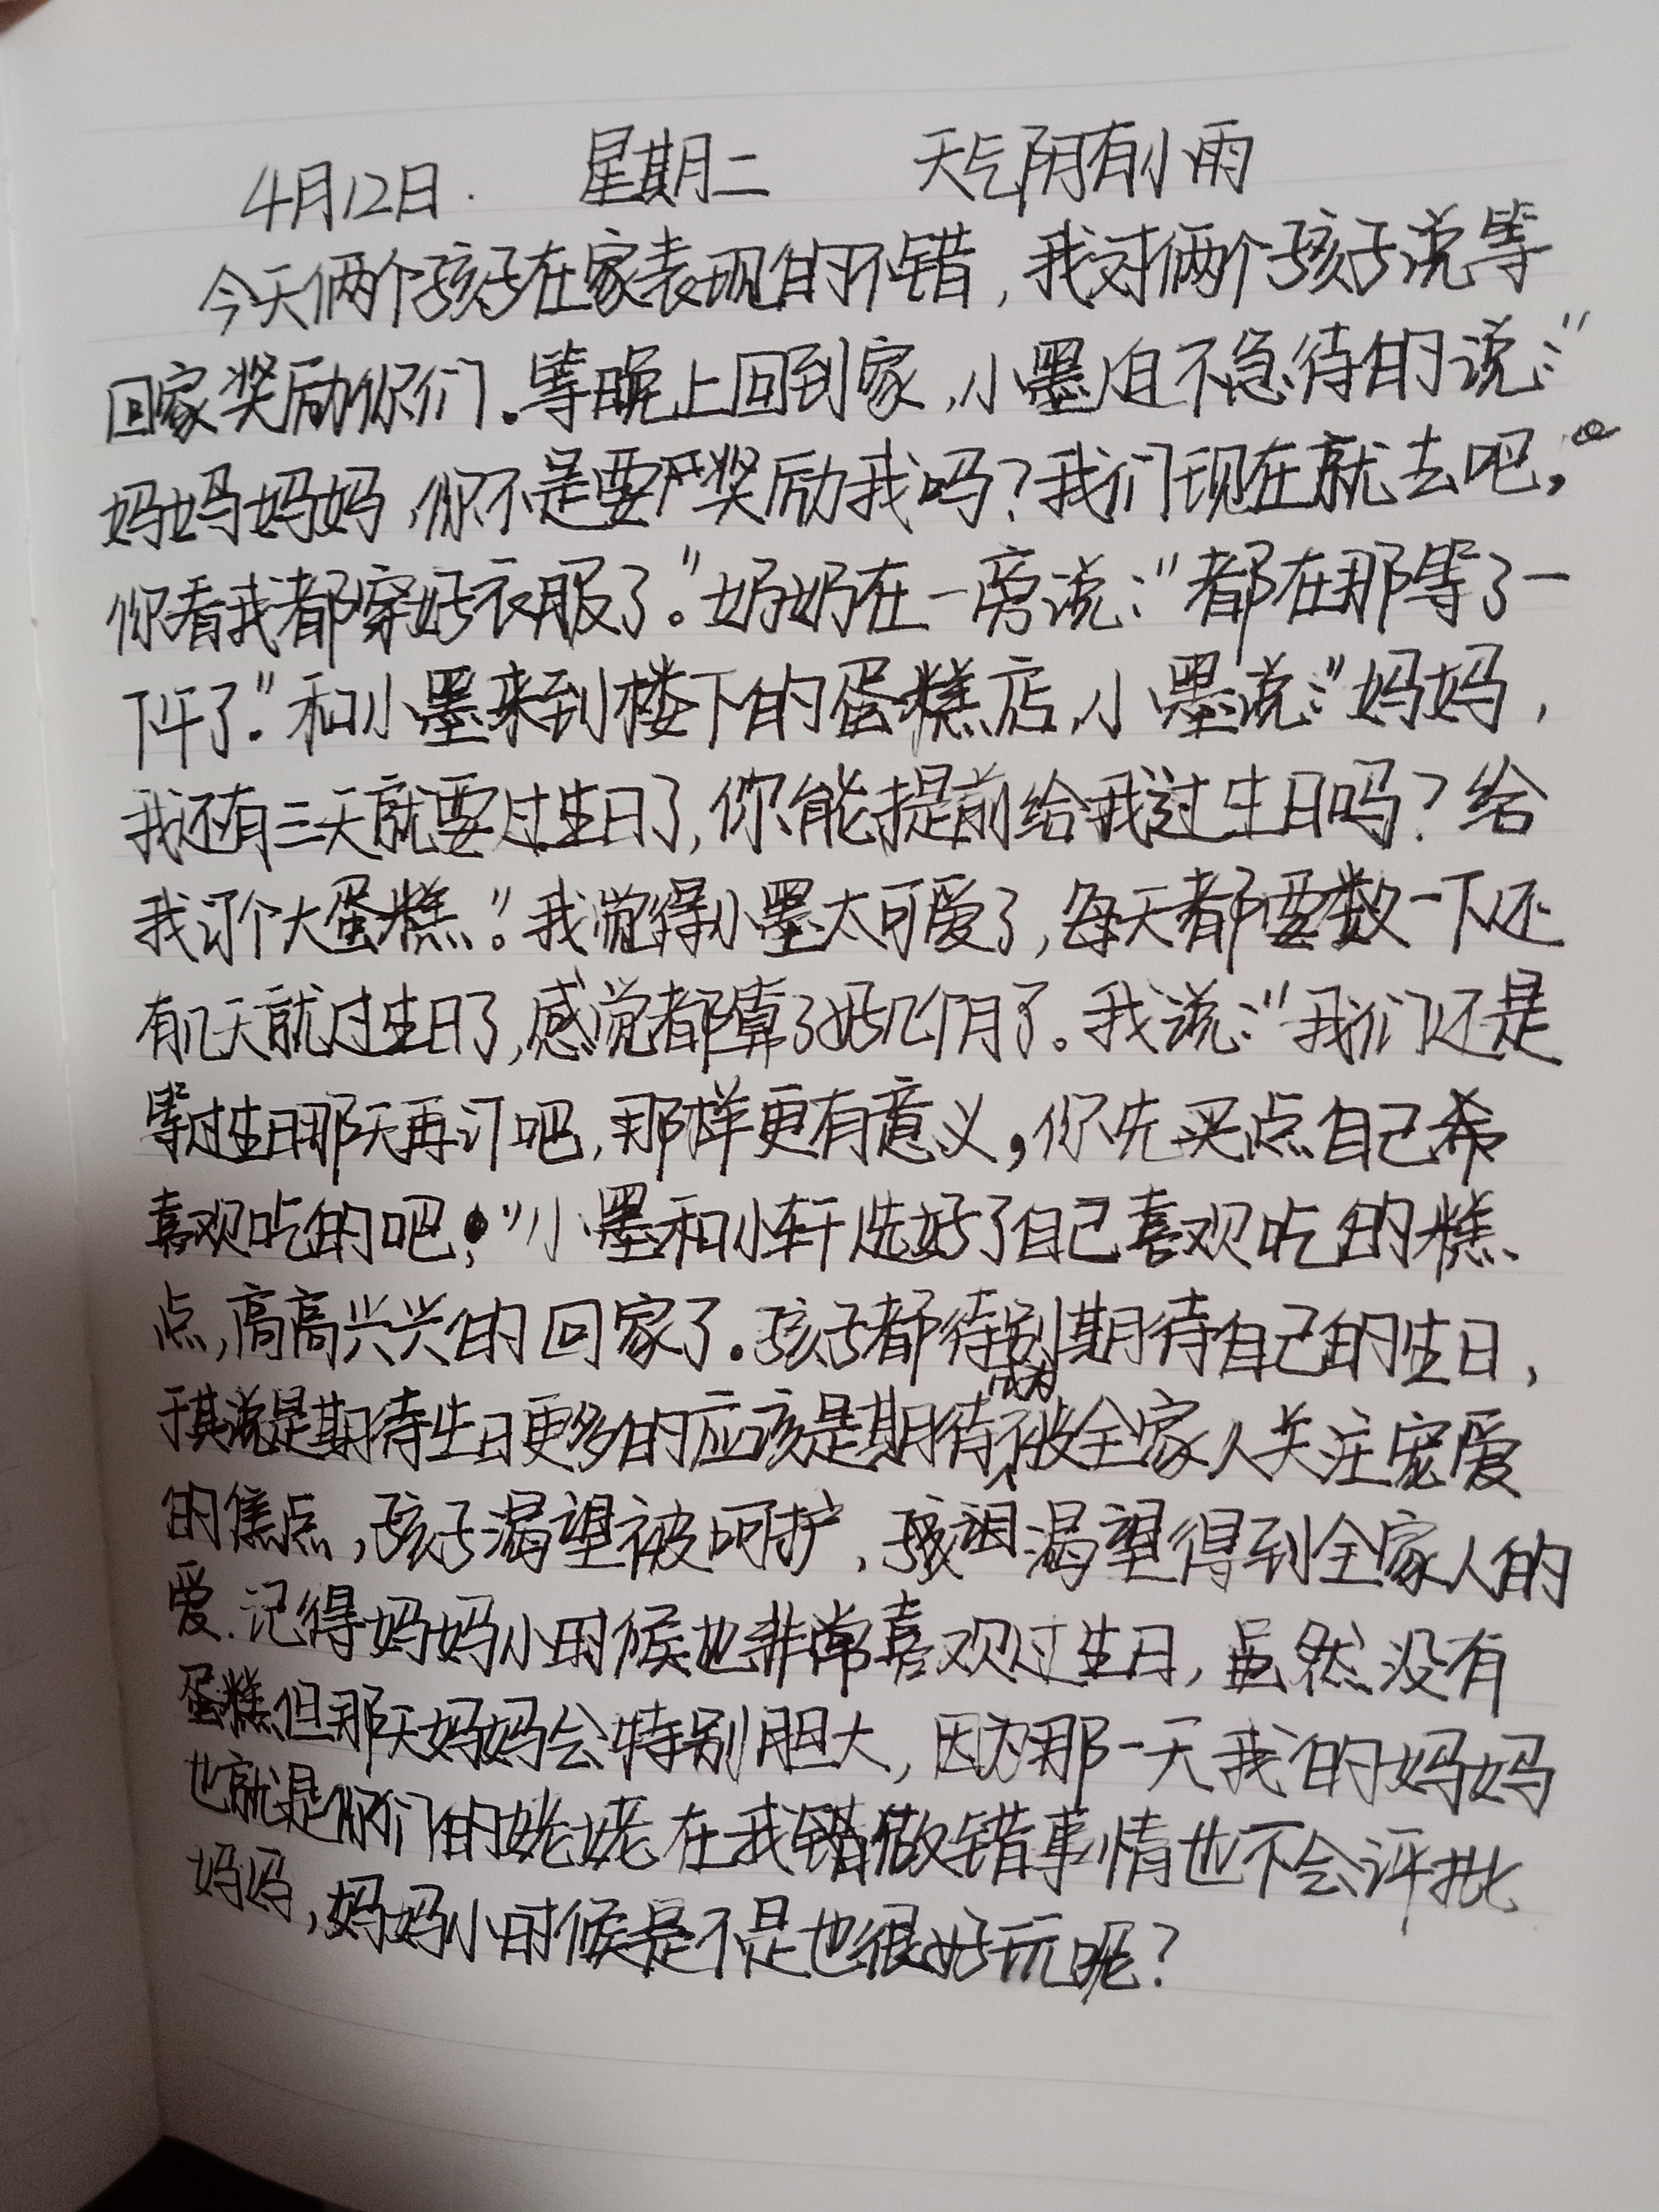 4月12日. 星期二 天气阴有小雨
今天俩个孩子在家表现的不错，我对俩个孩子说等
回家奖励你们。等晚上回到家，小墨迫不急待的说：“
妈妈妈妈，你不是要奖励我吗？我们现在就去吧，
你看我都穿好衣服了。”奶奶在一旁说：“都在那等了一
下午了.”和小墨来到楼下的蛋糕店，小墨说：“妈妈，
我还有三天就要过生日了，你能提前给我过生日吗？给
我订个大蛋糕。”我觉得小墨太可爱了，每天都要数一下还
有几天就过生日了，感觉都算了好几个月了。我说：“我们还是
等过生日那天再订吧，那样更有意义，你先买点自己
喜欢吃的吧，”小墨和小轩选好了自己喜欢吃的糕
点，高高兴兴的回家了.孩子都特别期待自己的生日，
于其说是期待生日更多的应该是期待成为被全家人关注宠爱
的焦点，孩子渴望被呵护，渴望得到全家人的
爱.记得妈妈小时候也非常喜欢过生日，虽然没有
蛋糕但那天妈妈会特别胆大，因为那一天我的妈妈
也就是你们的姥姥在我做错事情也不会评批
妈妈，妈妈小时候是不是也很好玩呢？